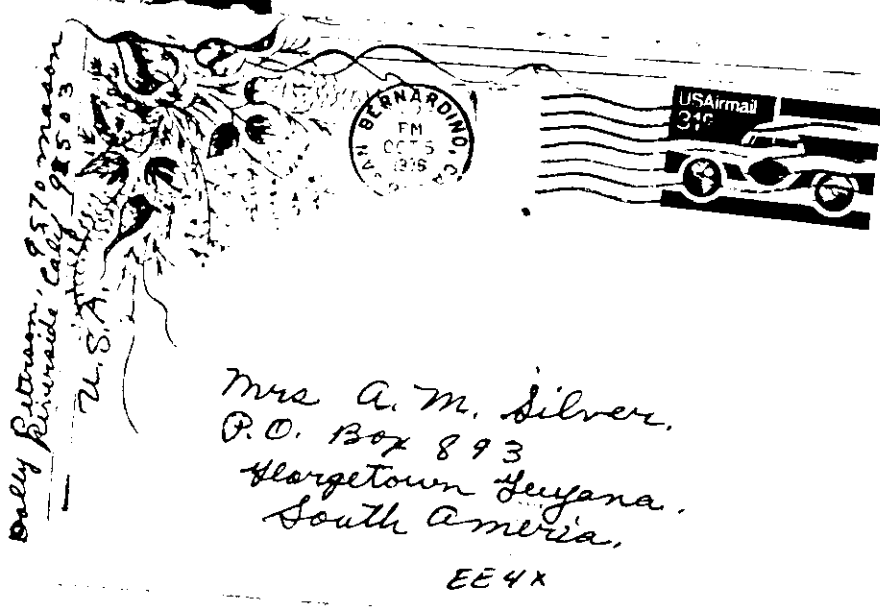 Dolly Peterson, 9570 Mason
Riverside Calif 92503
U.S.A.
SAN BERNARDINO, CA
PM
OCT 5
1976
USAirmail
31c
Mrs A. M. Silver.
P.O. Box 893
Georgetown Guyana.
South America.
EE4X